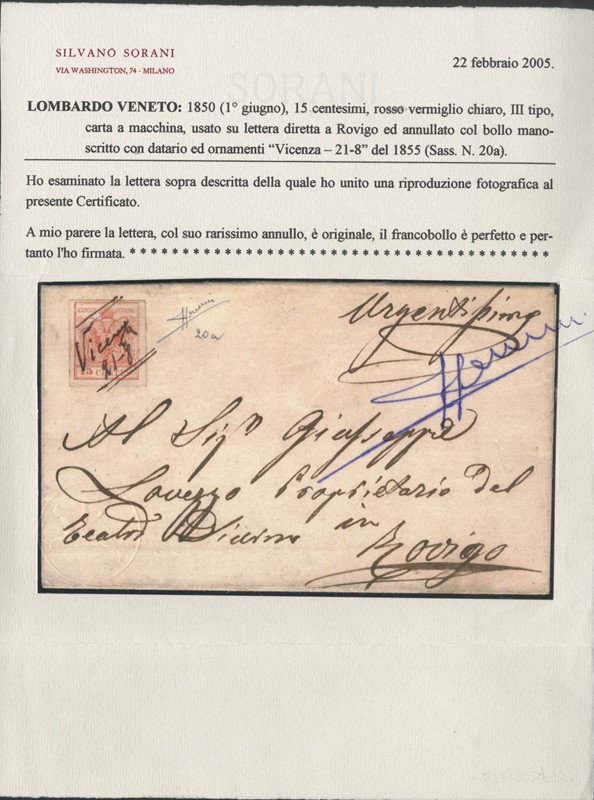 SILVANO SORANI
VIA WASHINGTON, 74 - MILANO
22 febbraio 2005.
SORANI
LOMBARDO VENETO: 1850 (1° giugno), 15 centesimi, rosso vermiglio chiaro, III tipo,
carta a macchina, usato su lettera diretta a Rovigo ed annullato col bollo mano-
scritto con datario ed ornamenti “Vicenza – 21-8” del 1855 (Sass. N. 20a).
Ho esaminato la lettera sopra descritta della quale ho unito una riproduzione fotografica al
presente Certificato.
A mio parere la lettera, col suo rarissimo annullo, è originale, il francobollo è perfetto e per-
tanto l'ho firmata. * * * * * * * * * * * * * * * * * * * * * * * * * * * * * * * * * * * * * * *
Vicenza
21-8
20a
Urgentissima
Al Sigr Giuseppe
Proprietario del
Teatro in
Rovigo